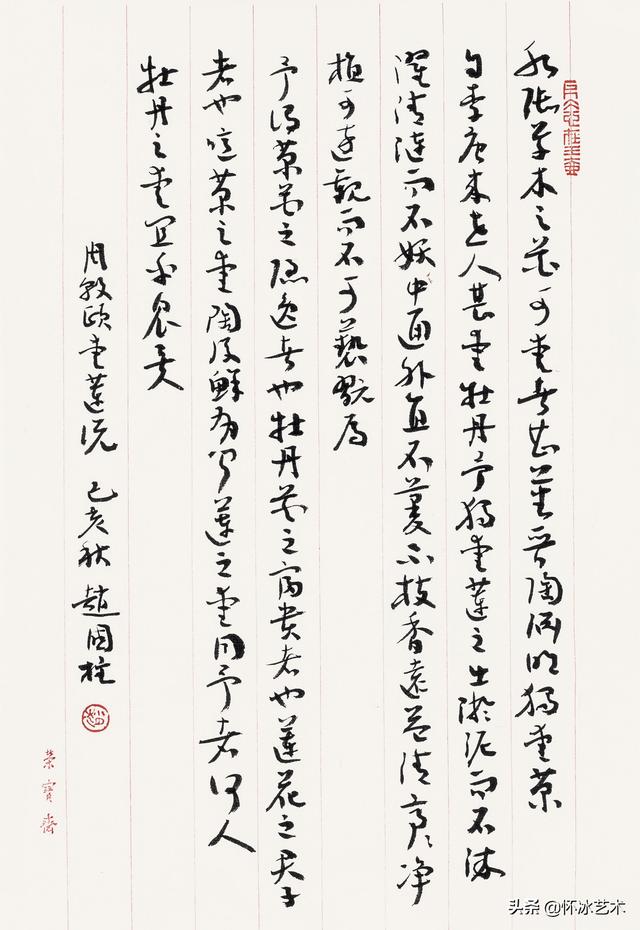 水陸草木之花可愛者甚蕃晉陶渊明獨愛菊
自李唐來世人甚愛牡丹予獨愛蓮之出淤泥而不染
濯清漣而不妖中通外直不蔓不枝香遠益清亭々净
植可遠觀而不可褻翫焉
予謂菊花之隱逸者也牡丹花之富貴者也蓮花之君子
者也噫菊之愛陶後鮮有聞蓮之愛同予者何人
牡丹之愛宜乎眾矣
周敦頤愛蓮說 己亥秋 趙國柱
榮寶齋
头条 @怀冰艺术